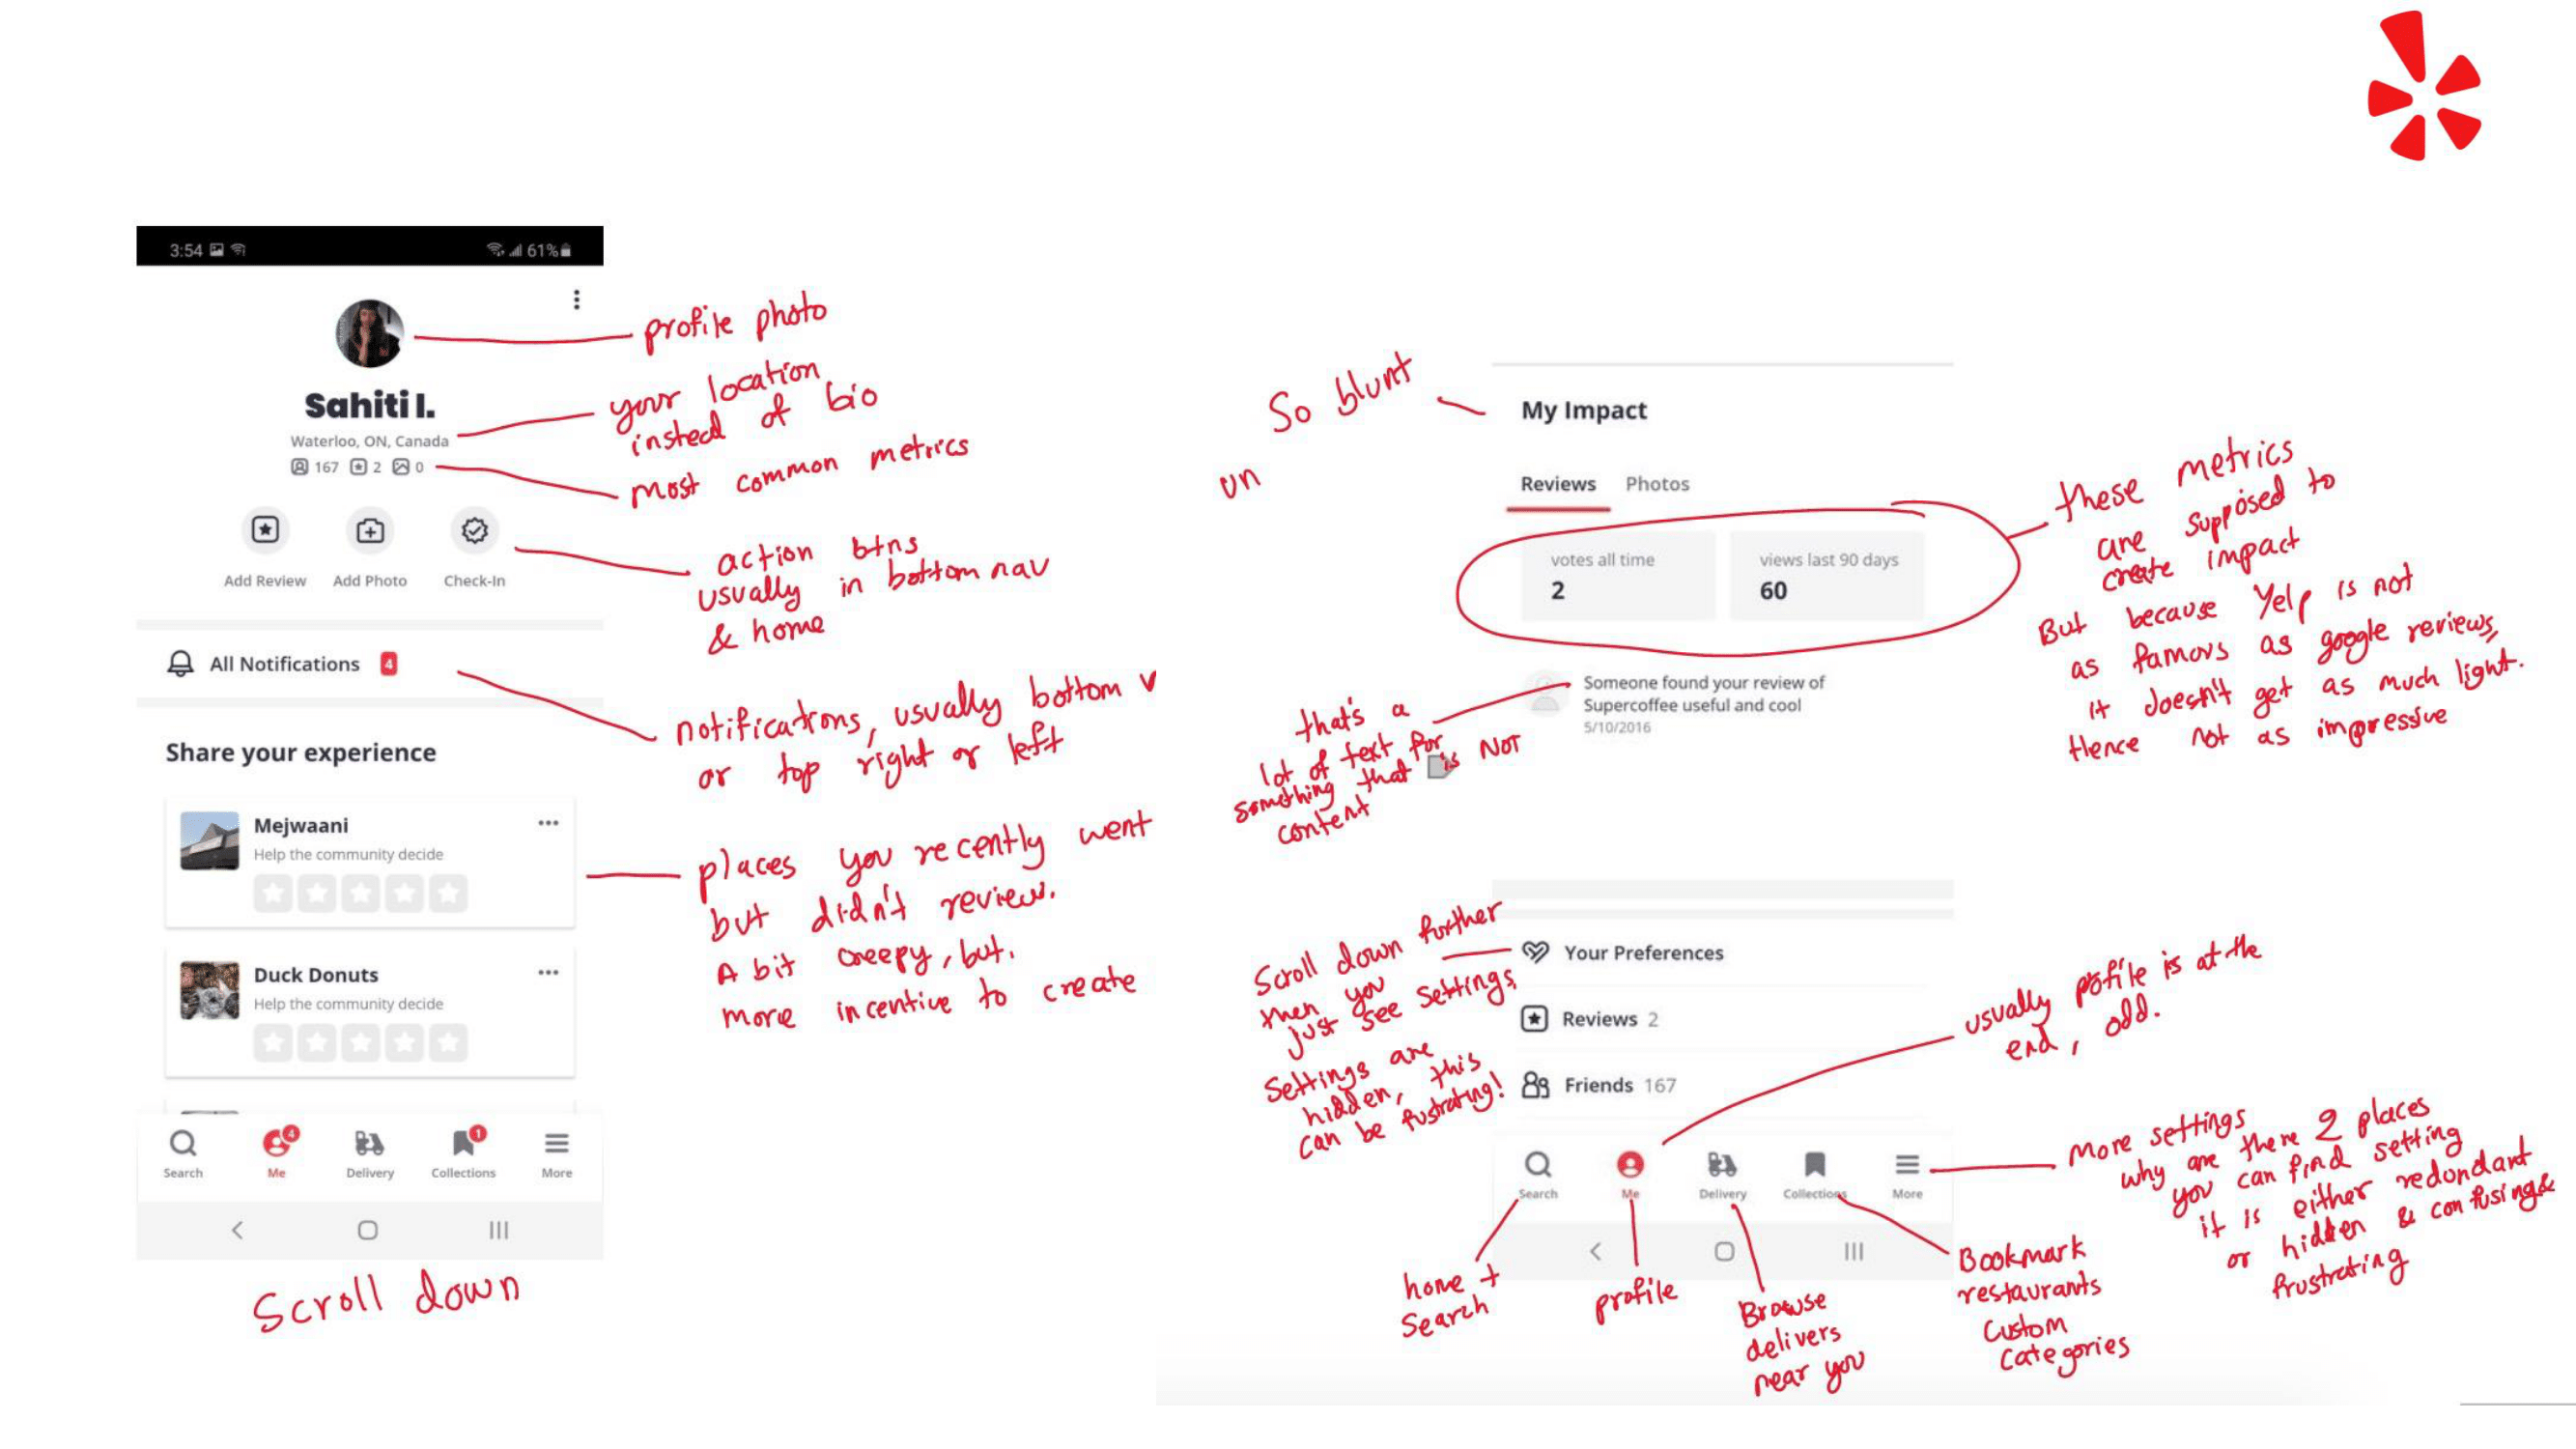 3:54
61%
profile photo
Sahiti I.
Waterloo, ON, Canada
167 2 0
your location
instead of bio
most common metrics
Add Review Add Photo Check-In
action btns
usually in bottom nav
& home
All Notifications 4
notifications, usually bottom
or top right or left
Share your experience
Mejwaani
Help the community decide
Duck Donuts
Help the community decide
places you recently went
but didn't review.
A bit creepy, but.
more incentive to create
4 1
Search Me Delivery Collections More
Scroll down
So blunt
un
My Impact
Reviews Photos
votes all time
2
views last 90 days
60
these metrics
are supposed to
create impact
But because Yelp is not
as famous as google reviews,
it doesn't get as much light.
Hence not as impressive
Someone found your review of
Supercoffee useful and cool
5/10/2016
that's a
lot of text for
something that is NOT
content
Scroll down further
then you
just see settings,
Settings are
hidden, this
can be fustrating!
Your Preferences
Reviews 2
Friends 167
usually pofile is at the
end, odd.
Search Me Delivery Collections More
more settings
why are there 2 places
you can find setting
it is either redondant
or hidden & confusing &
frustrating
home +
Search
profile
Browse
delivers
near you
Bookmark
restaurants
Custom
Categories